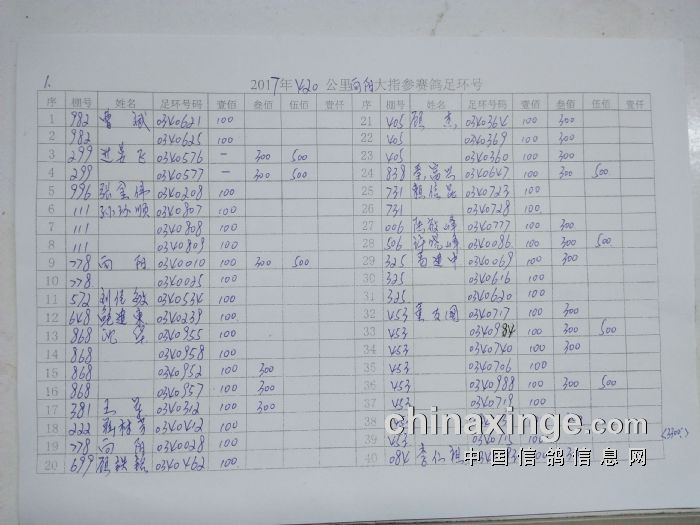 1.
2017年 420 公里向阳大指参赛鸽足环号
序 棚号 姓名 足环号码 壹佰 叁佰 伍佰 壹仟 序 棚号 姓名 足环号码 壹佰 叁佰 伍佰 壹仟
1 982 曹斌 0340621 100 21 405 顾杰 0340364 100 300
2 982 0340625 100 22 405 0340369 100 300
3 299 0340576 — 300 500 23 405 0340360 100 300
4 299 0340577 — 300 500 24 838 0340647 100 300 500
5 996 张金伟 0340208 100 25 731 0340723 100
6 111 孙顺 0340807 100 26 731 0340728 100
7 111 0340808 100 27 006 陈敏峰 0340777 100 300
8 111 0340809 100 28 506 许峰 0340086 100 300 500
9 778 向阳 0340010 100 300 500 29 325 建中 0340069 100 300
10 778 0340025 100 30 325 0340616 100
11 572 刘传敏 0340534 100 31 325 0340620 100
12 648 建东 0340239 100 32 453 友国 0340717 100 300
13 868 沈军 0340955 100 33 453 0340984 100 300 500
14 868 0340958 100 34 453 0340740 100 300
15 868 0340952 100 300 35 453 0340706 100
16 868 0340957 100 300 36 453 0340988 100 300 500
17 381 王军 0340312 100 300 37 453 0340719 100
18 222 0340412 100 38
19 778 向阳 0340028 100 39 453 100
20 699 顾 0340462 100 40 084 李仁祖
chinaxinge.com
中国信鸽信息网